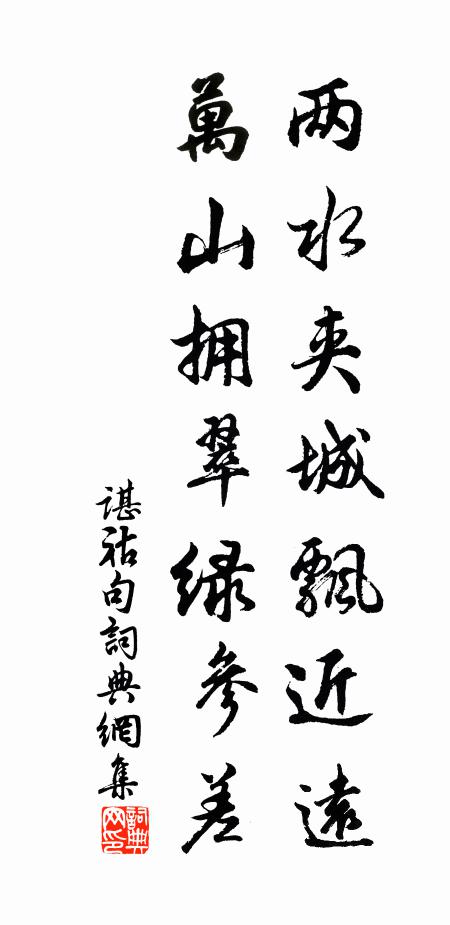 两水夹城飘近远
萬山拥翠绿参差
谌祜句詞典網集
詞典网印